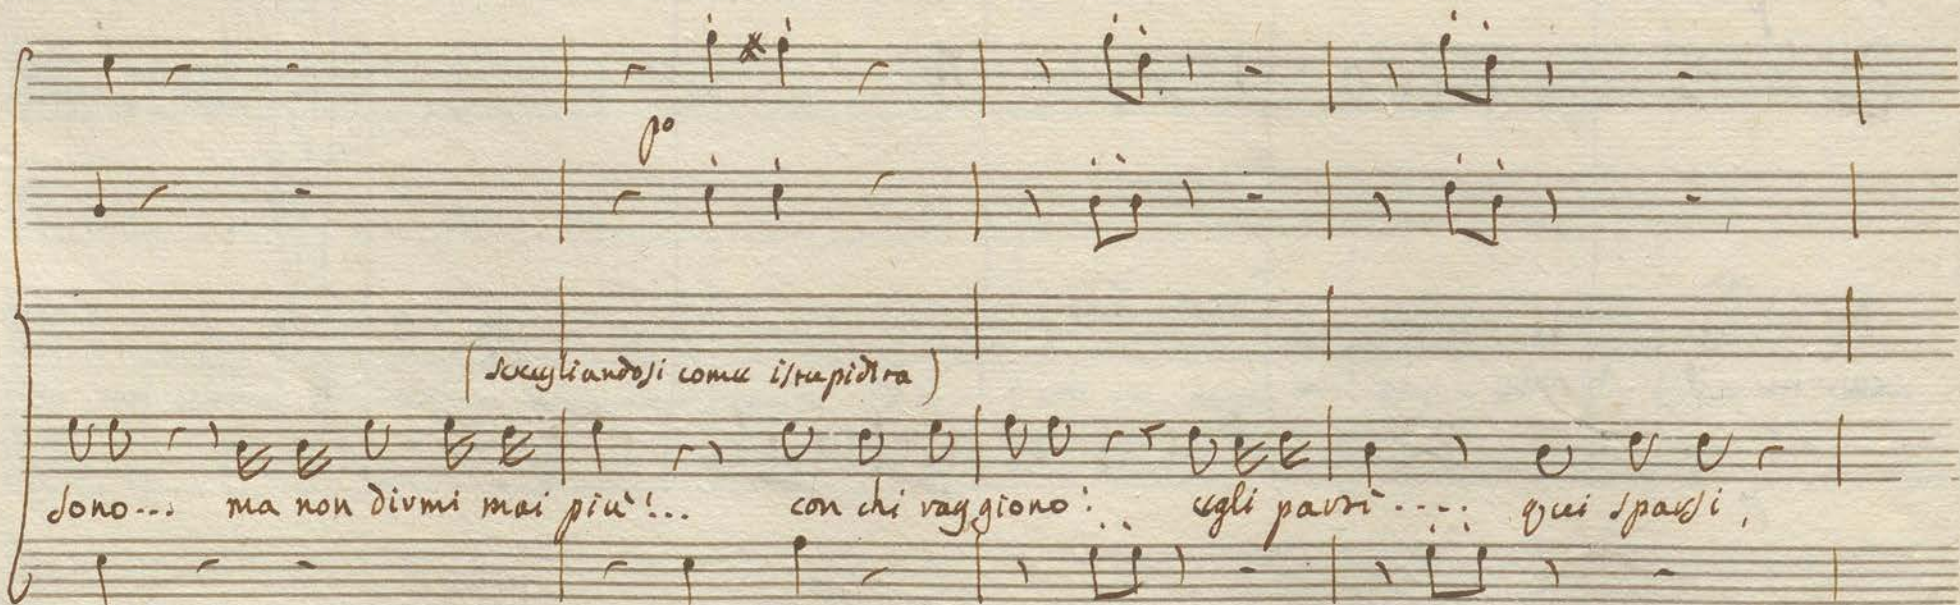 po
(svegliandosi come istupidita)
sono... ma non dirmi mai più!... con chi raggiono: egli partì..... qui sparsi,